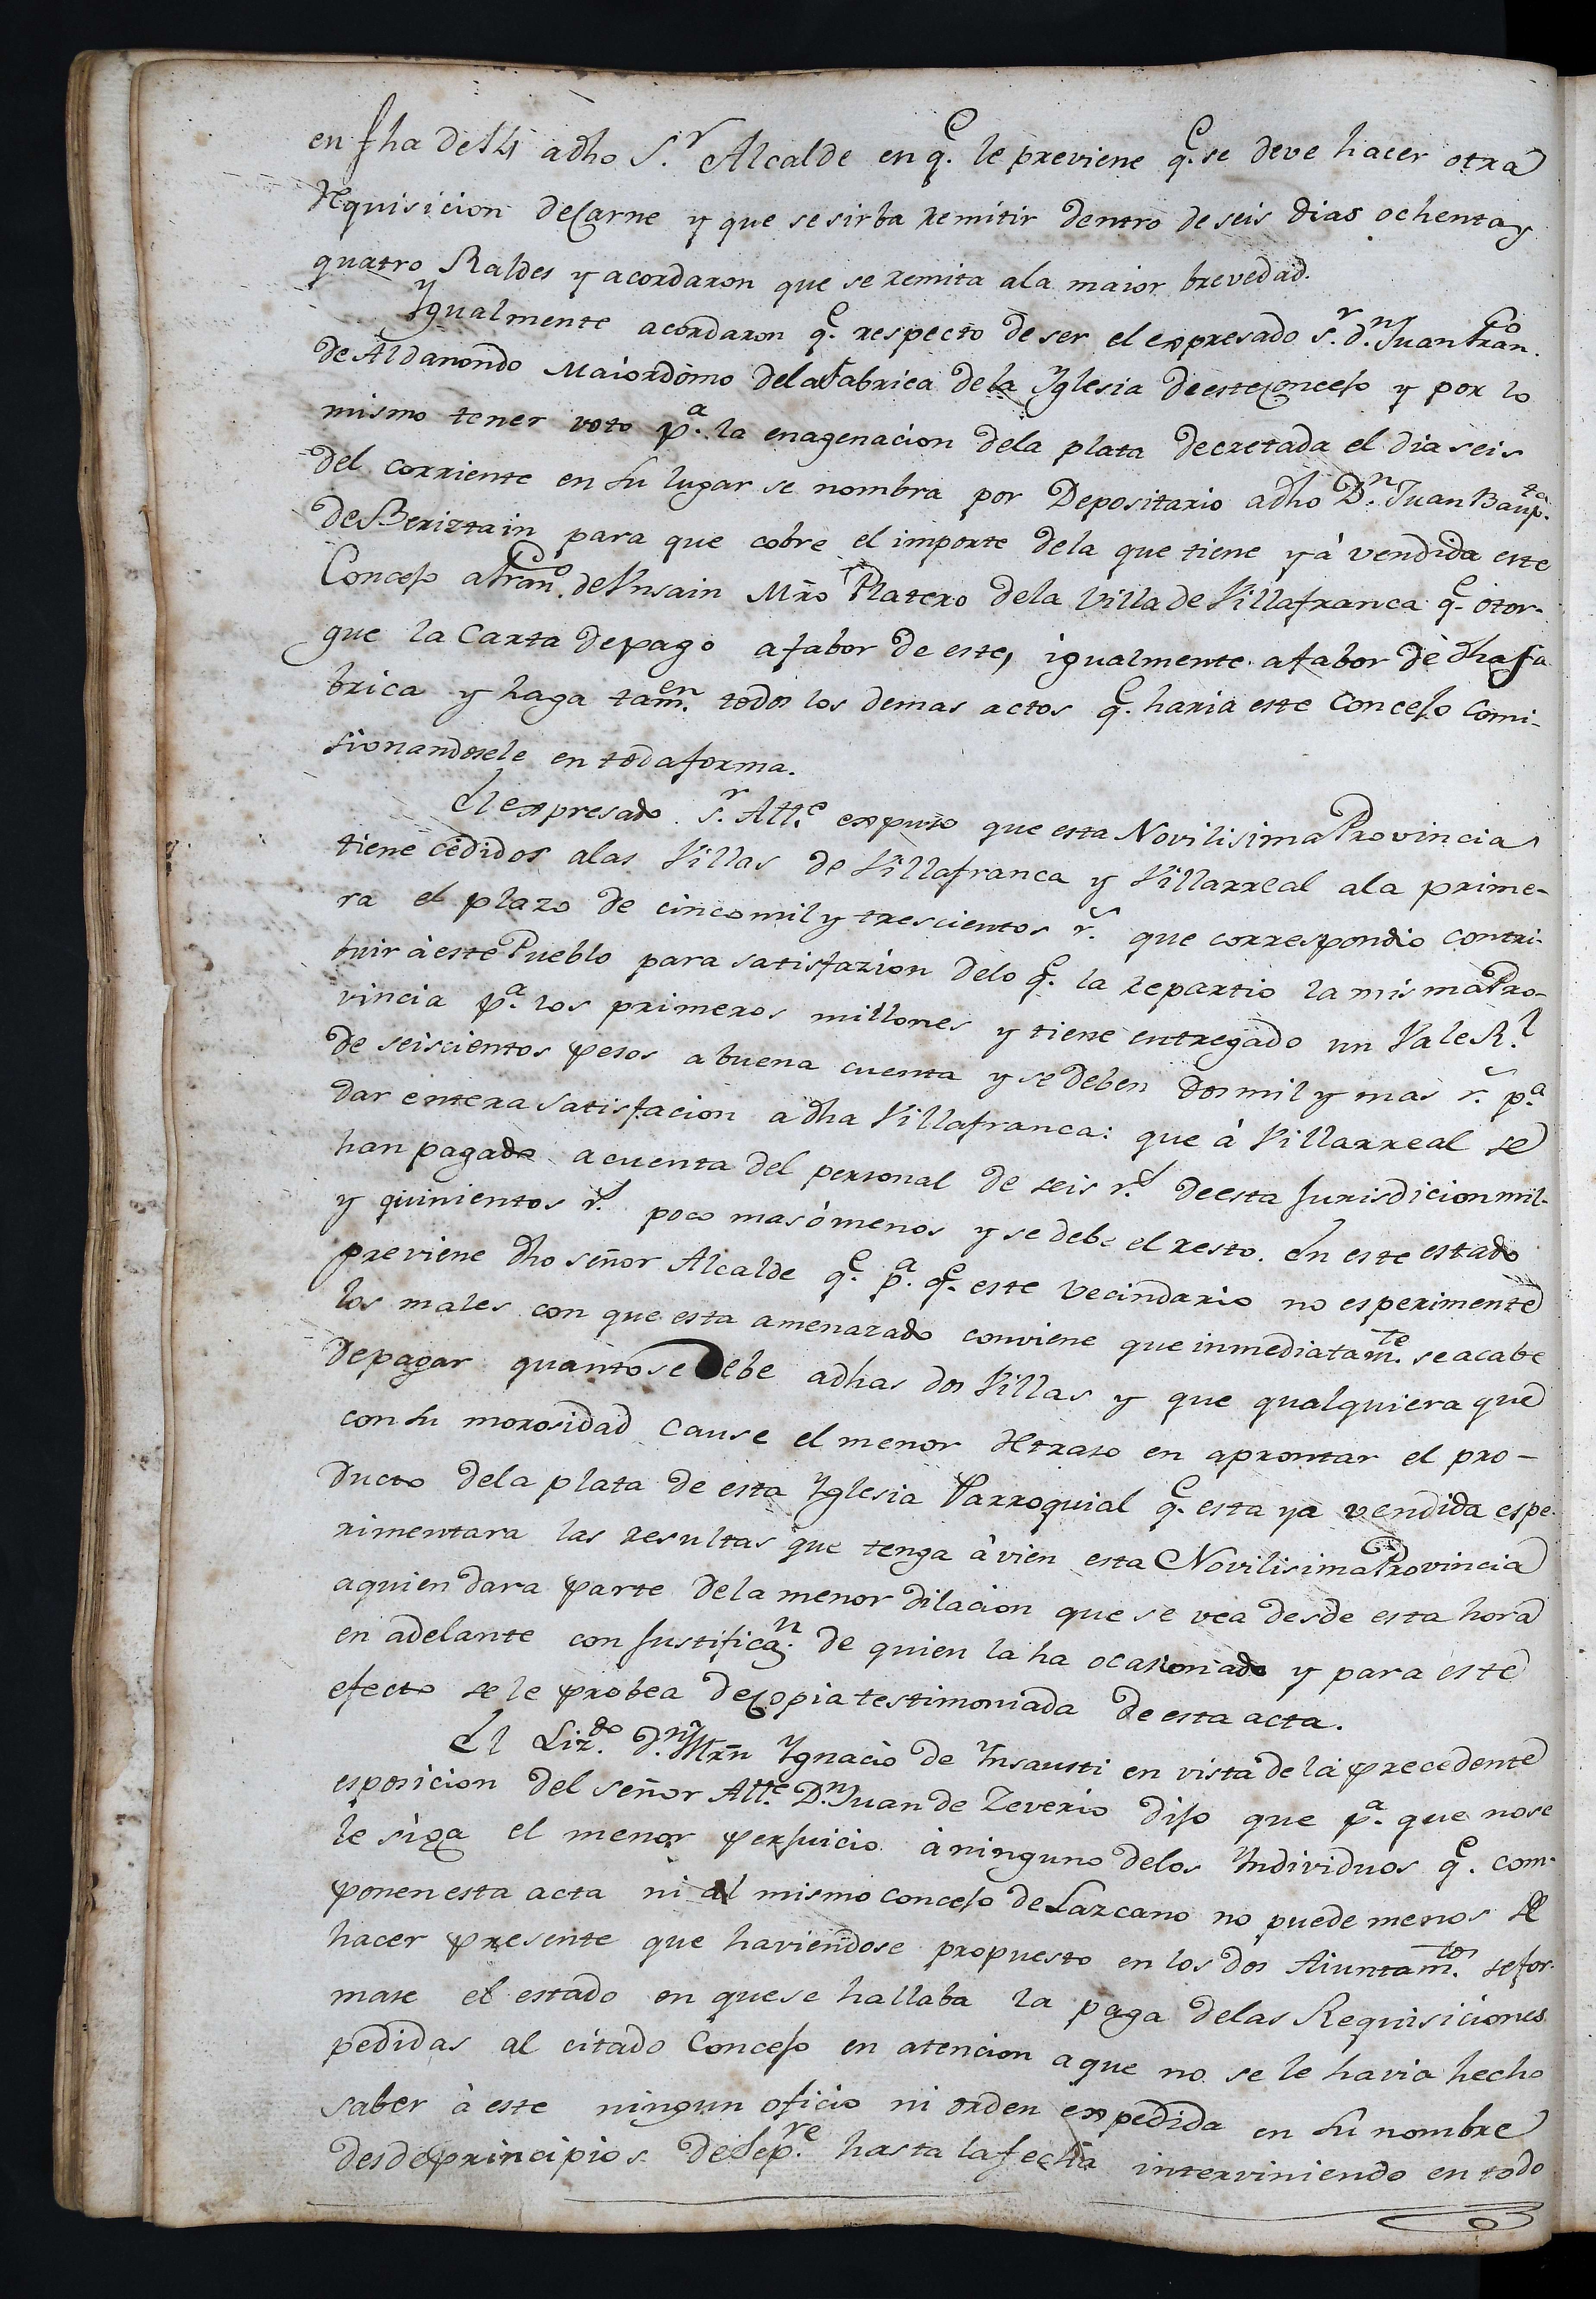 en fha del 21 adho S.r Alcalde en q.e le previene q.e se deve hacer otra
Requisicion de Carne y que se sirba remitir dentro de seis dias ochenta y
quatro Raldes y acordaron que se remita ala maior brevedad.
Ygualmente acordaron q.e respecto de ser el expresado s.r d.n Juan Fran.co
de Aldanondo Maiordomo dela Fabrica de la Yglesia de este Concejo y por lo
mismo tener voto p.a la enagenacion dela plata decretada el dia seis
del corriente en su lugar se nombra por Depositario adho D.n Juan Baup.ta
de Beriztain para que cobre el importe dela que tiene yà vendida este
Concejo a Fran.co de Ynsain Mro Platero dela Villa de Villafranca q.e otor-
gue la Carta de pago a fabor de este, igualmente a fabor de dha fa
brica y haga tam.en todos los demas actos q.e haria este Concejo Comi-
sionandosele en toda forma.
El expresado s.r Alle.e expuso que esta Novilisima Provincia
tiene cedidos alas Villas de Villafranca y Villarreal ala prime-
ra el plazo de cinco mil y trescientos r.s que correspondio contri-
buir à este Pueblo para satisfazion delo q.e la repartio la misma Pro-
vincia p.a los primeros millones y tiene entregado un Vale R.l
de seiscientos pesos a buena cuenta y se deben dos mil y mas r.s p.a
dar entera satisfacion a dha Villafranca: que à Villarreal se
han pagado a cuenta del personal de seis r.s de esta Jurisdicion mil
y quinientos r.s poco mas ò menos y se debe el resto. En este estado
previene dho señor Alcalde q.e p.a q.e este Vecindario no esperimente
los males con que esta amenazado conviene que inmediatam.te se acabe
de pagar quanto se Debe adhas dos Villas y que qualquiera que
con su morosidad cause el menor Retraso en aprontar el pro-
ducto dela plata de esta Yglesia Parroquial q.e esta ya vendida espe-
rimentara las resultas que tenga à vien esta Novilisima Provincia
a quien dara parte dela menor dilacion que se vea desde esta hora
en adelante con Justifica.n de quien la ha ocasionado y para este
efecto se le probea de Copia testimoniada de esta acta.
El Liz.do d.n Mrñ Ygnacio de Ynsausti en vista de la precedente
esposicion del señor Alle.e D.n Juan de Zeverio dijo que p.a que no se
le siga el menor perjuicio à ninguno delos Yndividuos q.e com-
ponen esta acta ni al mismo concejo de Lazcano no puede menos de
hacer presente que haviendose propuesto en los dos Aiuntam.tos se for-
mase el estado en que se hallaba la paga delas Requisiciones
pedidas al citado Concejo en atencion a que no se le havia hecho
saber à este ningun oficio ni orden expedida en su nombre
desde principios de Sep.re hasta la fecha interviniendo en todo